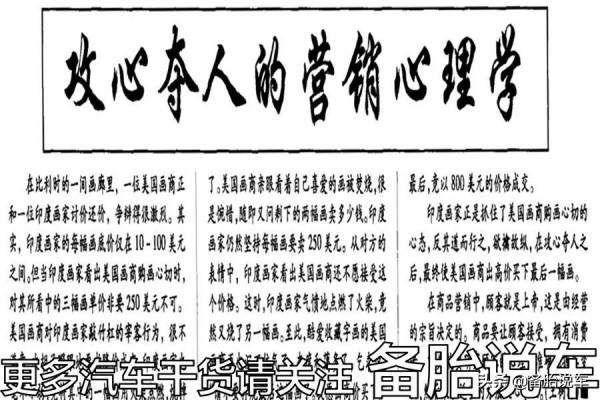 攻心夺人的营销心理学
在比利时的一间画廊里，一位美国画商正
和一位印度画家讨价还价，争辩得很激烈。其
实，印度画家的每幅画底价仅在10－100美元
之间。但当印度画家看出美国画商购画心切时，
对其所看中的三幅画单价非要250美元不可。
美国画商对印度画家敲竹杠的宰客行为，很不
了。美国画商亲眼看着自己喜爱的画被焚烧，很
是惋惜，随即又问剩下的两幅画卖多少钱。印度
画家仍然坚持每幅画要卖250美元。从对方的
表情中，印度画家看出美国画商还不愿接受这
个价格。这时，印度画家气愤地点燃了火柴，竟
然又烧了另一幅画。至此，酷爱收藏字画的美国
最后，竟以800美元的价格成交。
印度画家正是抓住了美国画商购画心切的
心态，反其道而行之，欲擒故纵，在攻心夺人之
后，最终使美国画商出高价买下最后一幅画。
在商品营销中，顾客就是上帝，这是由经营
的宗旨决定的。商品要让顾客接受，拥有消费
更多汽车干货请关注 备胎说车
头条 @备胎说车